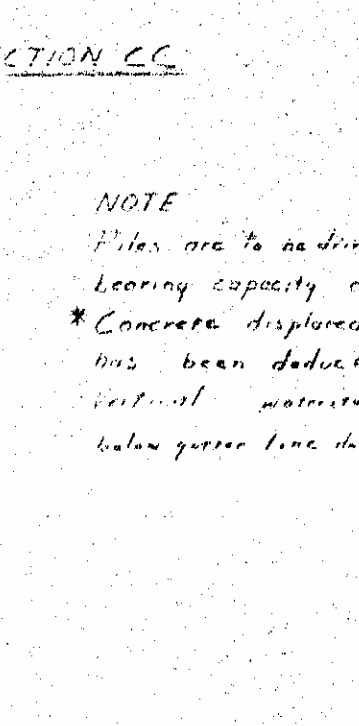 CTION CC
NOTE
Piles are to be driv
bearing capacity o
* Concrete displaced
has been deduct
Vertical waterst
below gutter line